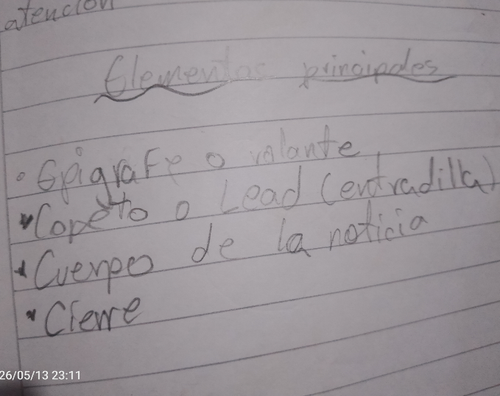 atención
Elementos principales
• Epigrafe o volante
• Copeto o Lead (entradilla)
• Cuerpo de la noticia
• Cierre
26/05/13 23:11